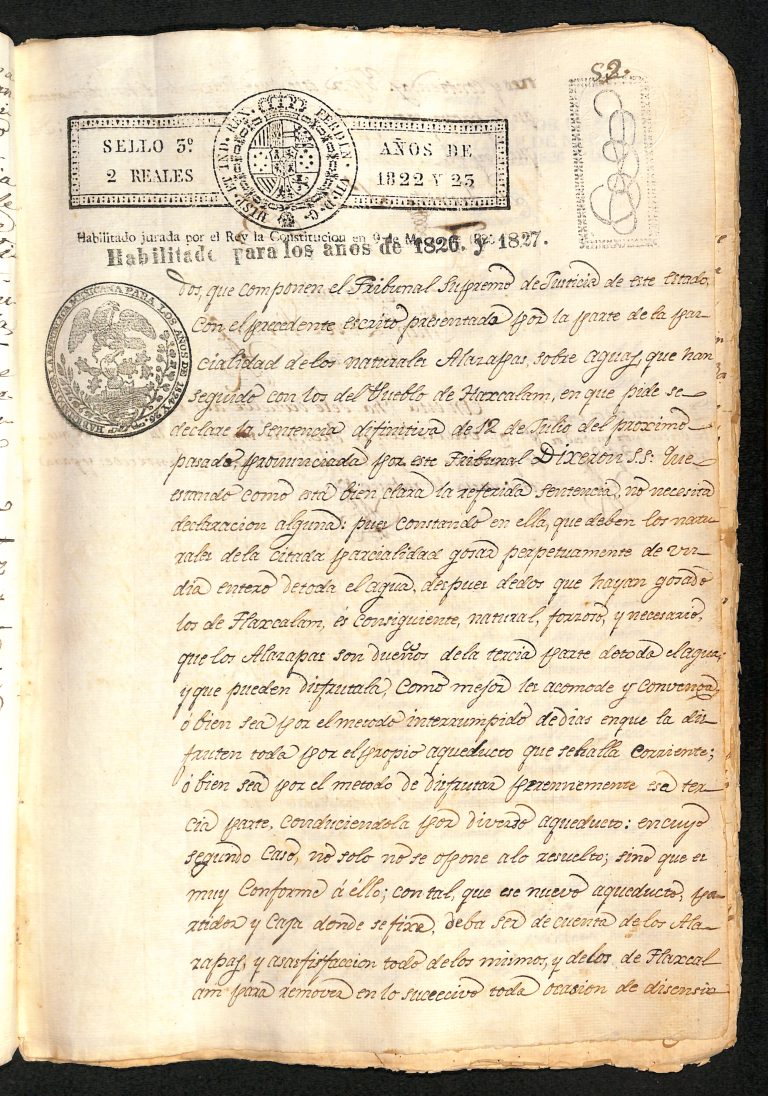 52.
SELLO 3º
2 REALES
FERDIN. VII. D. G. HISP. ET IND. REX.
AÑOS DE
1822 Y 23
Habilitado jurada por el Rey la Constitucion en 9 de
Habilitado para los años de 1826. y 1827.
dos, que componen el Tribunal Supremo de Justicia de este estado,
Con el precedente escrito presentado por la parte de la par-
cialidad de los naturales Alazapas, sobre aguas, que han
seguido con los del Pueblo de Tlaxcalam, en que pide se
declare la sentencia difinitiva de 12 de Julio del proximo
pasado, pronunciada por este Tribunal Dixeron S.S: Que
estando como está bien clara la referida sentencia, no necesita
declaracion alguna: pues constando en ella, que deben los natu-
rales de la citada parcialidad gosar perpetuamente de vn
dia entero de toda el agua, despues de dos que hayan gosado
los de Tlaxcalam, és consiguiente, natural, forzoso, y necesario,
que los Alazapas son dueños de la tercia parte de toda el agua,
y que pueden disfrutala, como mejor les acomode y convenga,
ó bien sea por el metodo interrumpido de dias en que la dis-
fruten toda por el propio aqueducto que se halla corriente;
ó bien sea por el metodo de disfrutar perennemente esa ter-
cia parte, conduciendola por diverso aqueducto: en cuyo
segundo caso, no solo no se opone a lo resuelto; sino que es
muy conforme á éllo; con tal, que ese nuevo aqueducto, pa-
rtidor y caja donde se fixe, deba ser de cuenta de los Ala-
zapas, y a sasfisfaccion todo de los mismos, y de los de Tlaxcal
am para remover en lo succecivo toda ocasion de disensio